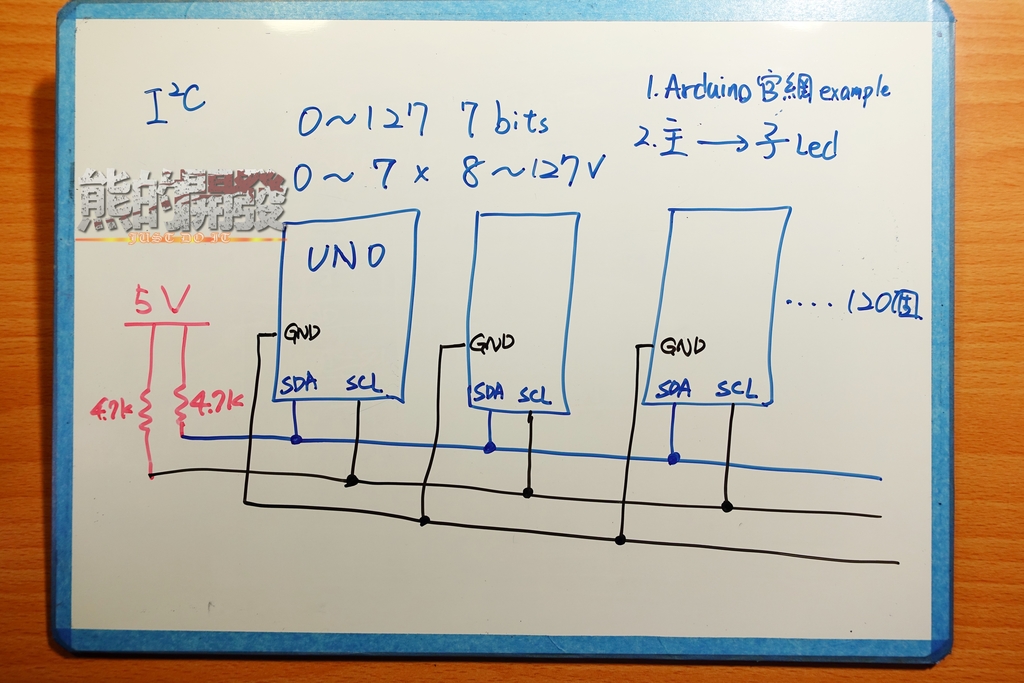 I²C
0~127 7 bits
0~7 x 8~127 V
1. Arduino 官網 example
2. 主 → 子 Led
熊的開發
JUST DO IT
UNO
5V
.... 120個
GND
GND
GND
SDA SCL
SDA SCL
SDA SCL
4.7k 4.7k